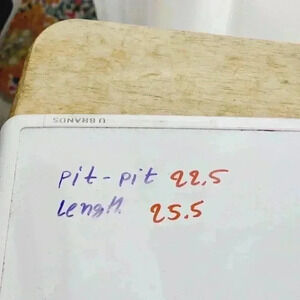 U BRANDS
pit-pit 22.5
Length 25.5